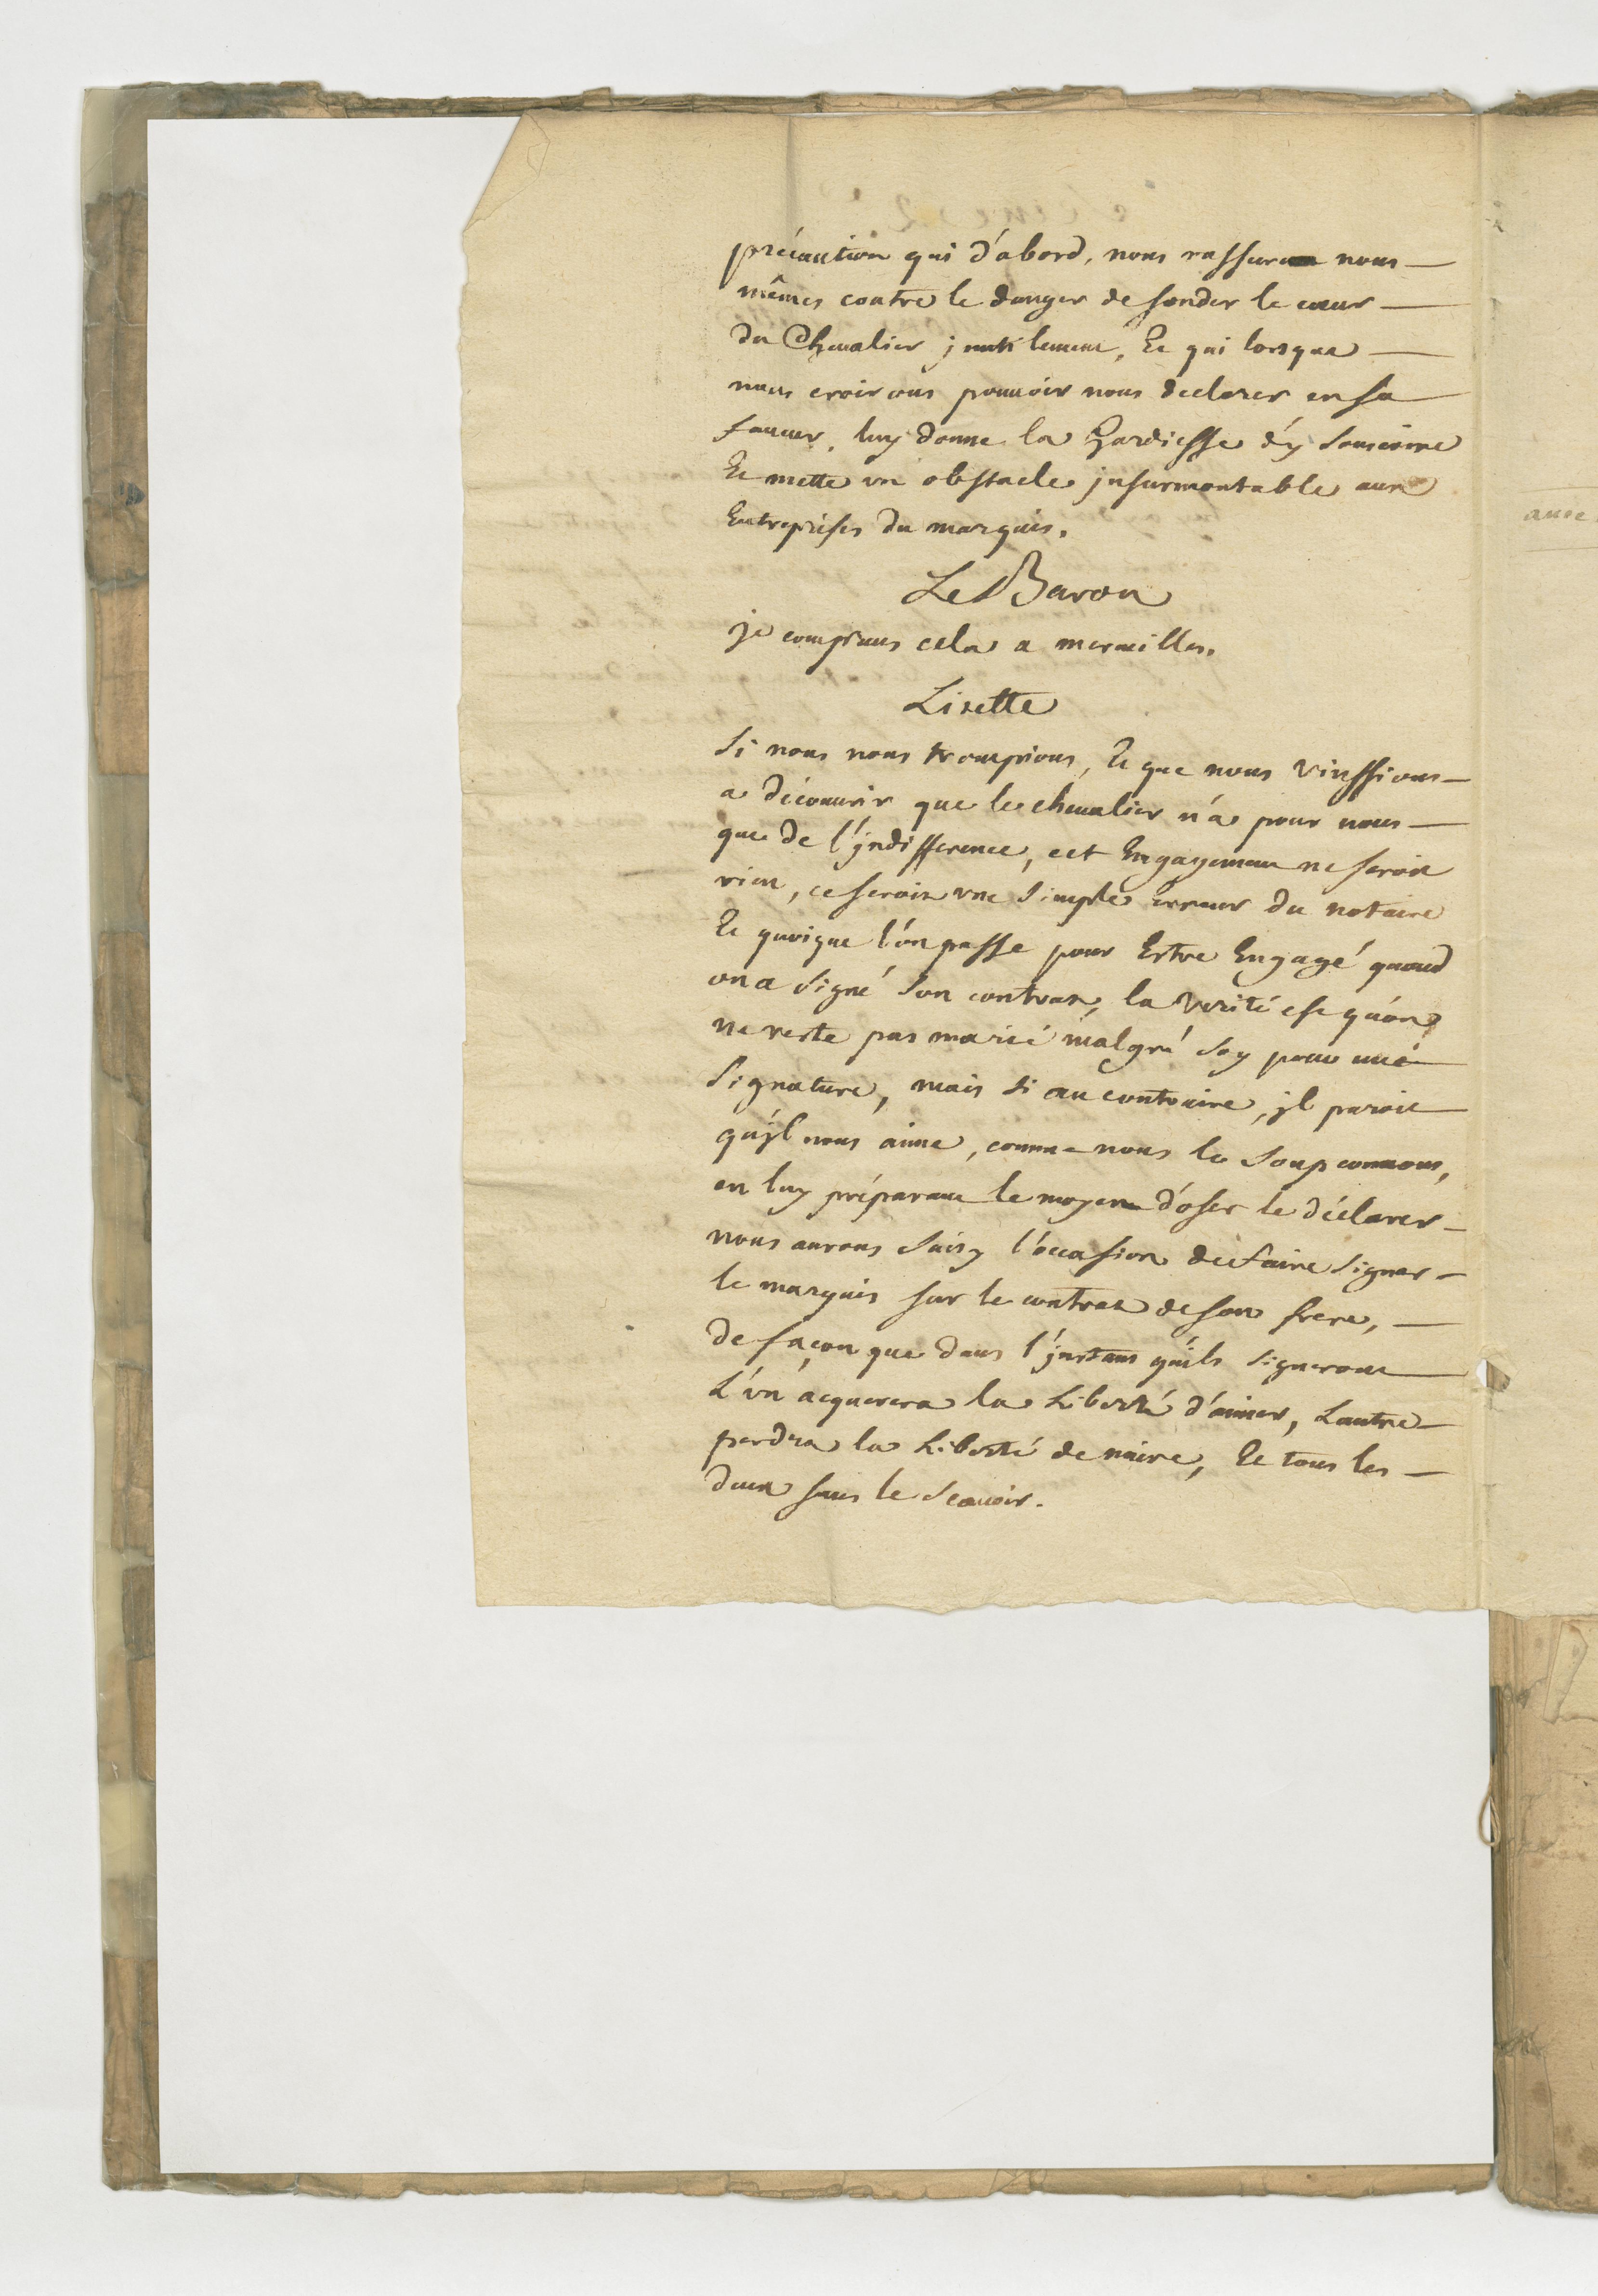 précaution qui d'abord, nous rassure nous
mêmes contre le danger de sonder le cœur
du Chevalier jnutilement, Et qui lorsque
nous croirons pouuoir nous declarer en sa
faueur, luy donne la Hardiesse d'y Souscrire
Et mette vn obstacle jnsurmontable aux
Entreprises du marquis.
Le Baron
je comprens cela a merueilles.
Lisette
Si nous nous trompions, Et que nous vinssions
a découurir que le cheualier n'a pour nous
que de l'jndifference, cet Engagement ne seroit
rien, ce seroit vne Simple erreur du notaire
Et quoique l'on passe pour Estre Engagé quand
on a Signé Son contrat, la verité est qu'on
ne reste pas marié malgré Soy pour une
Signature, mais Si au contraire, jl paroit
qu'jl nous aime, comme nous le Soupçonnons,
en luy préparant le moyen d'oser le déclarer
nous aurons Saisy l'occasion de faire Signer
le marquis sur le contrat de son frere,
de façon que dans l'jnstant qu'ils Signeront
L'vn acquerera la Liberté d'aimer, Lautre
perdra la Liberté de nuire, Et tous les
deux sans le Scauoir.